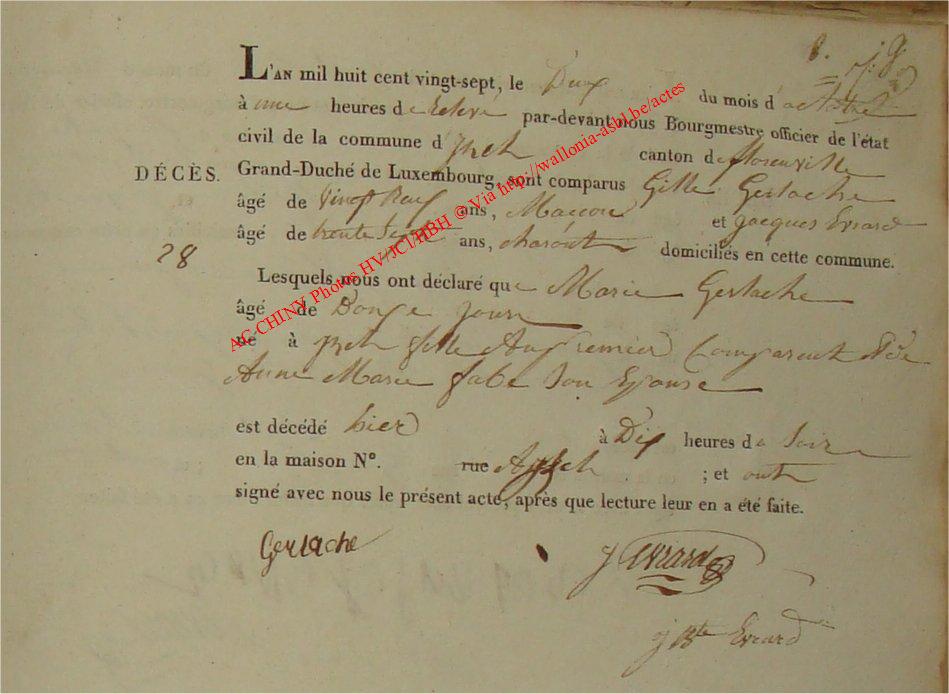 8.
L'AN mil huit cent vingt-sept, le Deux du mois d'octobre
à une heures de relevé par-devant nous Bourgmestre officier de l'état
civil de la commune d'Izel canton de florenville
DÉCÈS. Grand-Duché de Luxembourg, sont comparus Gille Gerlache
âgé de vingt Neuf ans, Maccon et jacques Evrard
âgé de trente Sept ans, domiciliés en cette commune.
28
Lesquels nous ont déclaré que Marie Gerlache
âgé de Douze jours
né à Izel fille Au premier Comparent et de
Anne Marie fabe Son Epouse
est décédé hier à Dix heures du Soir
en la maison N°. rue A Izel ; et ont
signé avec nous le présent acte, après que lecture leur en a été faite.
Gerlache j Evrard
j Bte Evrard
AC CHINY Photos HV/JCL/RBH © Via http://wallonia-asbl.be/actes